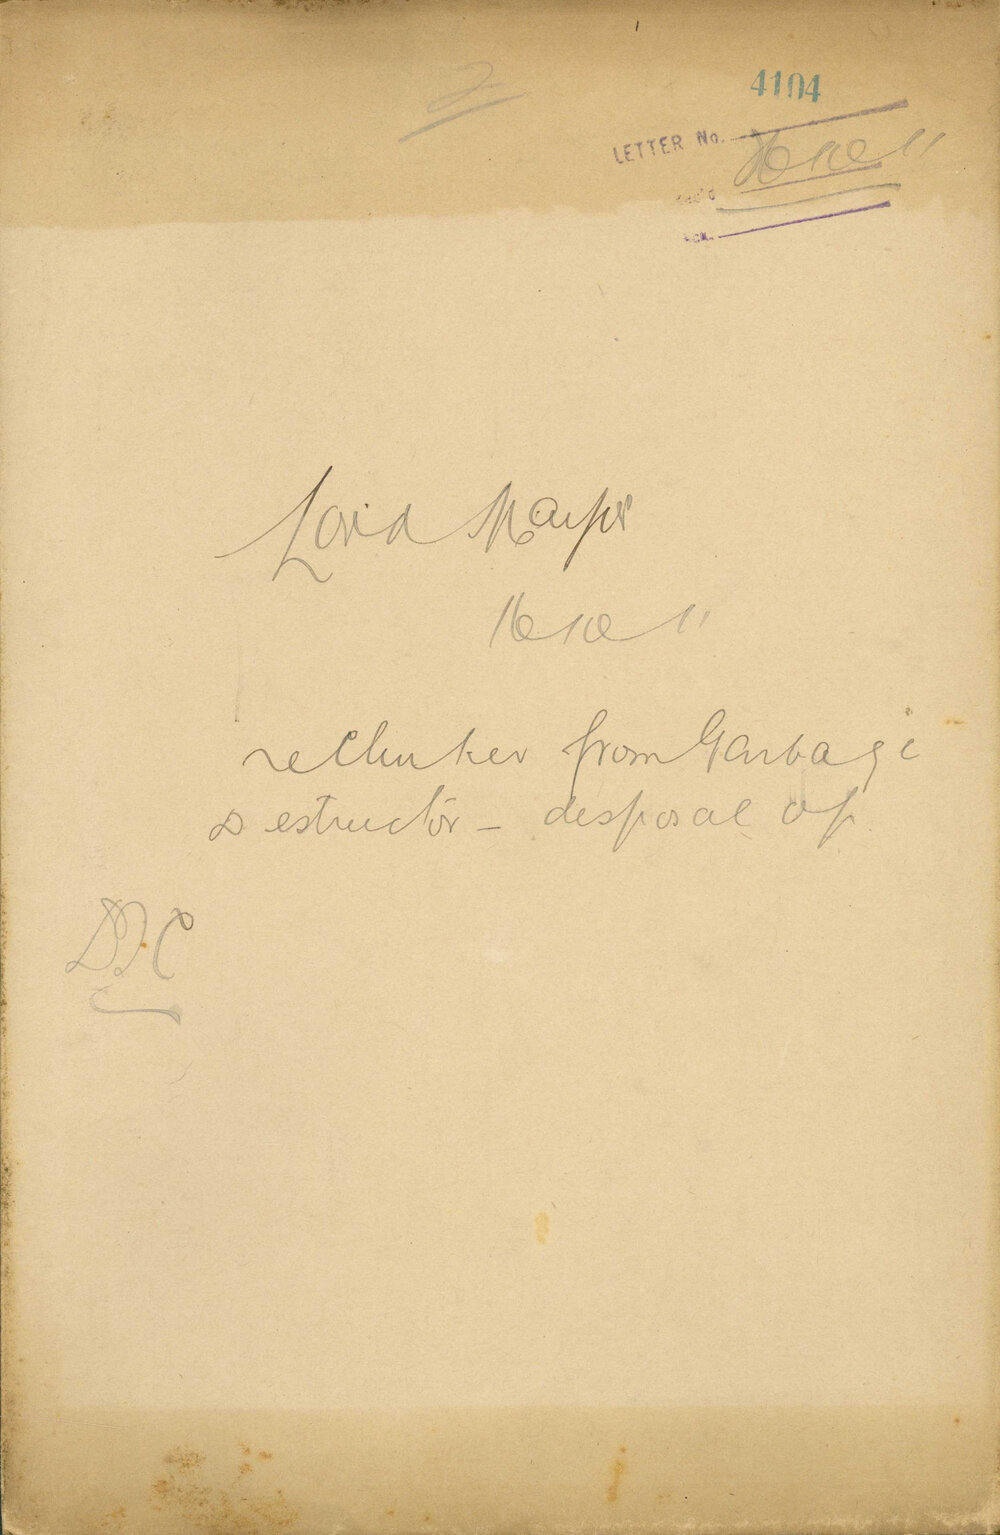 4104
LETTER No.
16/10/11
Lord Mayor
16/10/11
re Clinker from Garbage
Destructor - disposal of